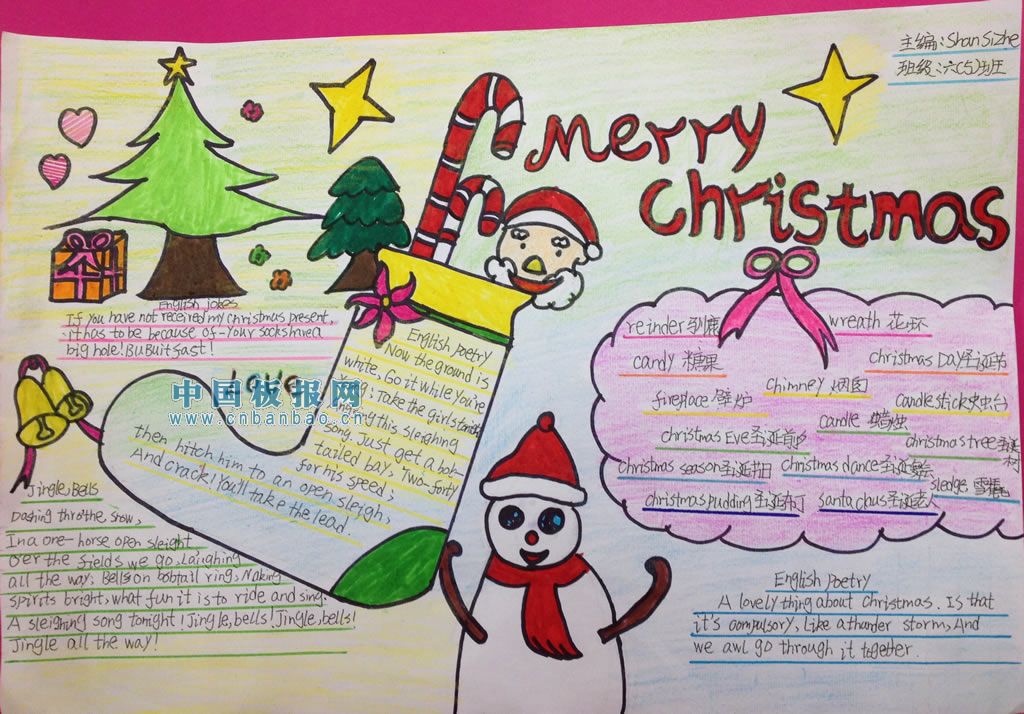 主编:Shan Sizhe
班级:六(5)班
Merry
Christmas
English jokes
If you have not received my Christmas present,
it has to be because of-Your socks have a
big hole! Bu Buit fast!
中国板报网
www.cnbanbao.cn
Love
English Poetry
Now the ground is
white, Go it while you're
Take the girls
this sleighing
song. Just get a bob-
tailed bay. Two-forty
for his speed;
then hitch him to an open sleigh,
And crack! You'll take the lead.
Jingle Bells
Dashing thro'the snow,
In a one-horse open sleight
over the fields we go, Laughing
all the way; Bells on bobtail ring, Making
spirits bright, what fun it is to ride and sing.
A sleighing song tonight! Jingle, bells! Jingle, bells!
Jingle all the way!
reinder 驯鹿
wreath 花环
candy 糖果
christmas Day 圣诞节
chimney 烟囱
fireplace 壁炉
candlestick 烛台
candle 蜡烛
christmas Eve 圣诞前夕
christmas tree 圣诞树
christmas season 圣诞节日
christmas dance 圣诞舞会
sledge. 雪橇
christmas pudding 圣诞布丁
santa claus 圣诞老人
English Poetry
A lovely thing about christmas. Is that
it's compulsory, Like a thander storm, And
we awl go through it together.